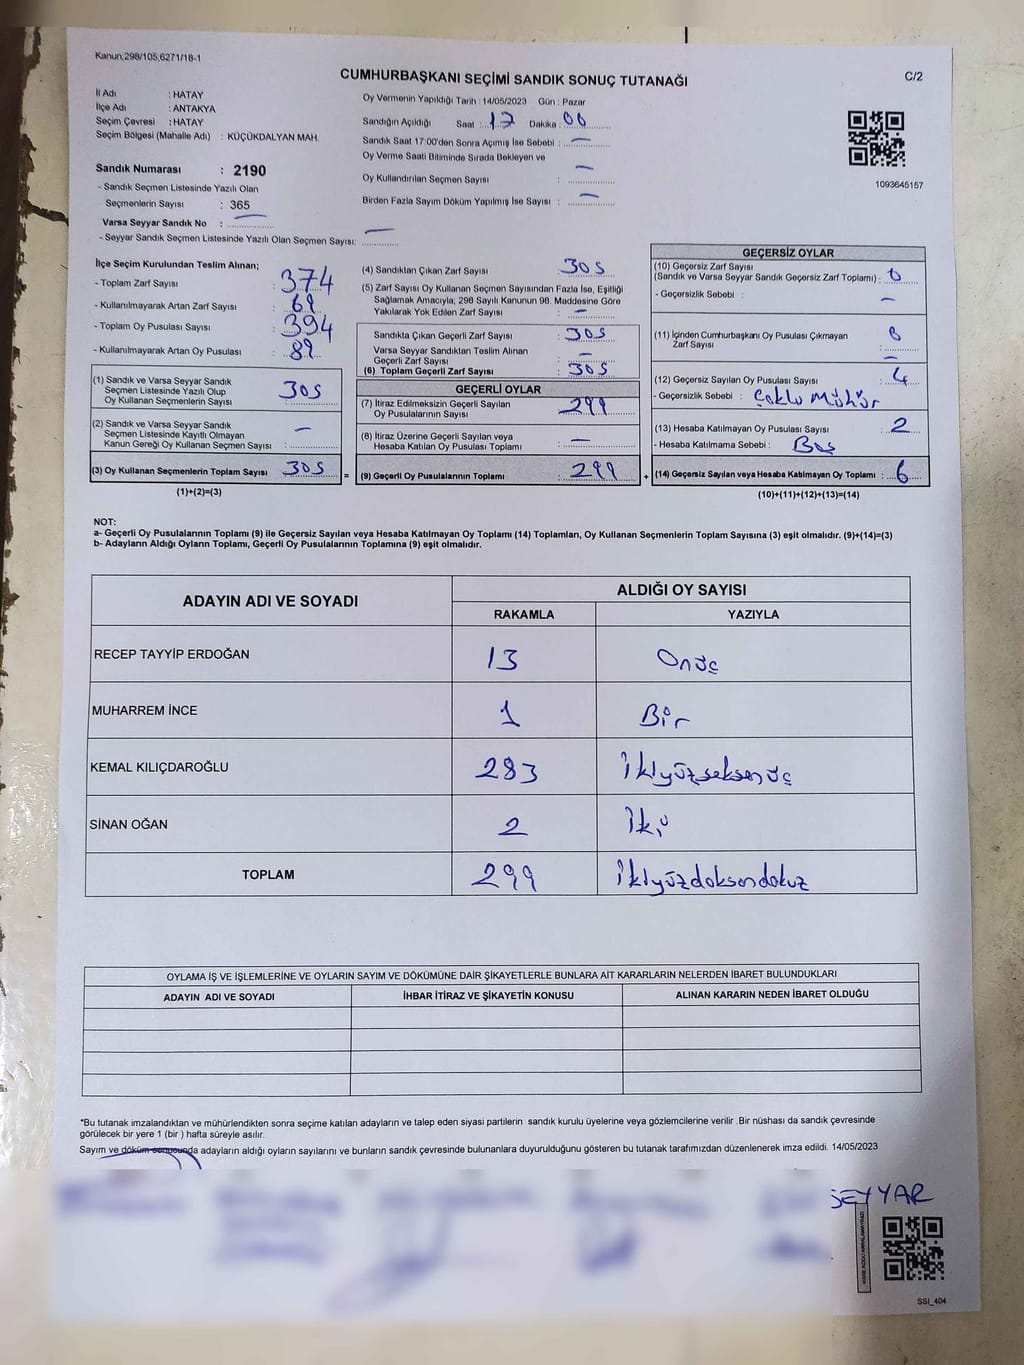 Kanun;298/105,6271/18-1
CUMHURBAŞKANI SEÇİMİ SANDIK SONUÇ TUTANAĞI
C/2
İl Adı : HATAY
İlçe Adı : ANTAKYA
Seçim Çevresi : HATAY
Seçim Bölgesi (Mahalle Adı) : KÜÇÜKDALYAN MAH.
Sandık Numarası : 2190
- Sandık Seçmen Listesinde Yazılı Olan
Seçmenlerin Sayısı : 365
Varsa Seyyar Sandık No : —
- Seyyar Sandık Seçmen Listesinde Yazılı Olan Seçmen Sayısı: —
Oy Vermenin Yapıldığı Tarih : 14/05/2023 Gün : Pazar
Sandığın Açıldığı Saat : 17 Dakika : 00
Sandık Saat 17:00'den Sonra Açımış İse Sebebi : —
Oy Verme Saati Bitiminde Sırada Bekleyen ve
Oy Kullandırılan Seçmen Sayısı : —
Birden Fazla Sayım Döküm Yapılmış İse Sayısı : —
1093645157
İlçe Seçim Kurulundan Teslim Alınan;
- Toplam Zarf Sayısı : 374
- Kullanılmayarak Artan Zarf Sayısı : 69
- Toplam Oy Pusulası Sayısı : 394
- Kullanılmayarak Artan Oy Pusulası : 89
(1) Sandık ve Varsa Seyyar Sandık
Seçmen Listesinde Yazılı Olup
Oy Kullanan Seçmenlerin Sayısı : 305
(2) Sandık ve Varsa Seyyar Sandık
Seçmen Listesinde Kayıtlı Olmayan
Kanun Gereği Oy Kullanan Seçmen Sayısı : —
(3) Oy Kullanan Seçmenlerin Toplam Sayısı : 305
(1)+(2)=(3)
=
(4) Sandıktan Çıkan Zarf Sayısı : 305
(5) Zarf Sayısı Oy Kullanan Seçmen Sayısından Fazla İse, Eşitliği
Sağlamak Amacıyla; 298 Sayılı Kanunun 98. Maddesine Göre
Yakılarak Yok Edilen Zarf Sayısı : —
Sandıkta Çıkan Geçerli Zarf Sayısı : 305
Varsa Seyyar Sandıktan Teslim Alınan
Geçerli Zarf Sayısı : —
(6) Toplam Geçerli Zarf Sayısı : 305
GEÇERLİ OYLAR
(7) İtiraz Edilmeksizin Geçerli Sayılan
Oy Pusulalarının Sayısı : 299
(8) İtiraz Üzerine Geçerli Sayılan veya
Hesaba Katılan Oy Pusulaları Toplamı : —
(9) Geçerli Oy Pusulalarının Toplamı : 299
+
GEÇERSİZ OYLAR
(10) Geçersiz Zarf Sayısı
(Sandık ve Varsa Seyyar Sandık Geçersiz Zarf Toplamı) : 0
- Geçersizlik Sebebi : —
(11) İçinden Cumhurbaşkanı Oy Pusulası Çıkmayan
Zarf Sayısı : 0
—
(12) Geçersiz Sayılan Oy Pusulası Sayısı : 4
- Geçersizlik Sebebi : Çoklu Mühür
(13) Hesaba Katılmayan Oy Pusulası Sayısı : 2
- Hesaba Katılmama Sebebi : Boş
(14) Geçersiz Sayılan veya Hesaba Katılmayan Oy Toplamı : 6
(10)+(11)+(12)+(13)=(14)
NOT:
a- Geçerli Oy Pusulalarının Toplamı (9) ile Geçersiz Sayılan veya Hesaba Katılmayan Oy Toplamı (14) Toplamları, Oy Kullanan Seçmenlerin Toplam Sayısına (3) eşit olmalıdır. (9)+(14)=(3)
b- Adayların Aldığı Oyların Toplamı, Geçerli Oy Pusulalarının Toplamına (9) eşit olmalıdır.
ADAYIN ADI VE SOYADI
ALDIĞI OY SAYISI
RAKAMLA YAZIYLA
RECEP TAYYİP ERDOĞAN 13 Onüç
MUHARREM İNCE 1 Bir
KEMAL KILIÇDAROĞLU 283 İkiyüzseksenüç
SİNAN OĞAN 2 İki
TOPLAM 299 İkiyüzdoksandokuz
OYLAMA İŞ VE İŞLEMLERİNE VE OYLARIN SAYIM VE DÖKÜMÜNE DAİR ŞİKAYETLERLE BUNLARA AİT KARARLARIN NELERDEN İBARET BULUNDUKLARI
ADAYIN ADI VE SOYADI İHBAR İTİRAZ VE ŞİKAYETİN KONUSU ALINAN KARARIN NEDEN İBARET OLDUĞU
*Bu tutanak imzalandıktan ve mühürlendikten sonra seçime katılan adayların ve talep eden siyasi partilerin sandık kurulu üyelerine veya gözlemcilerine verilir .Bir nüshası da sandık çevresinde
görülecek bir yere 1 (bir ) hafta süreyle asılır.
Sayım ve döküm sonucunda adayların aldığı oyların sayılarını ve bunların sandık çevresinde bulunanlara duyurulduğunu gösteren bu tutanak tarafımızdan düzenlenerek imza edildi. 14/05/2023
SEYYAR
SSİ_404